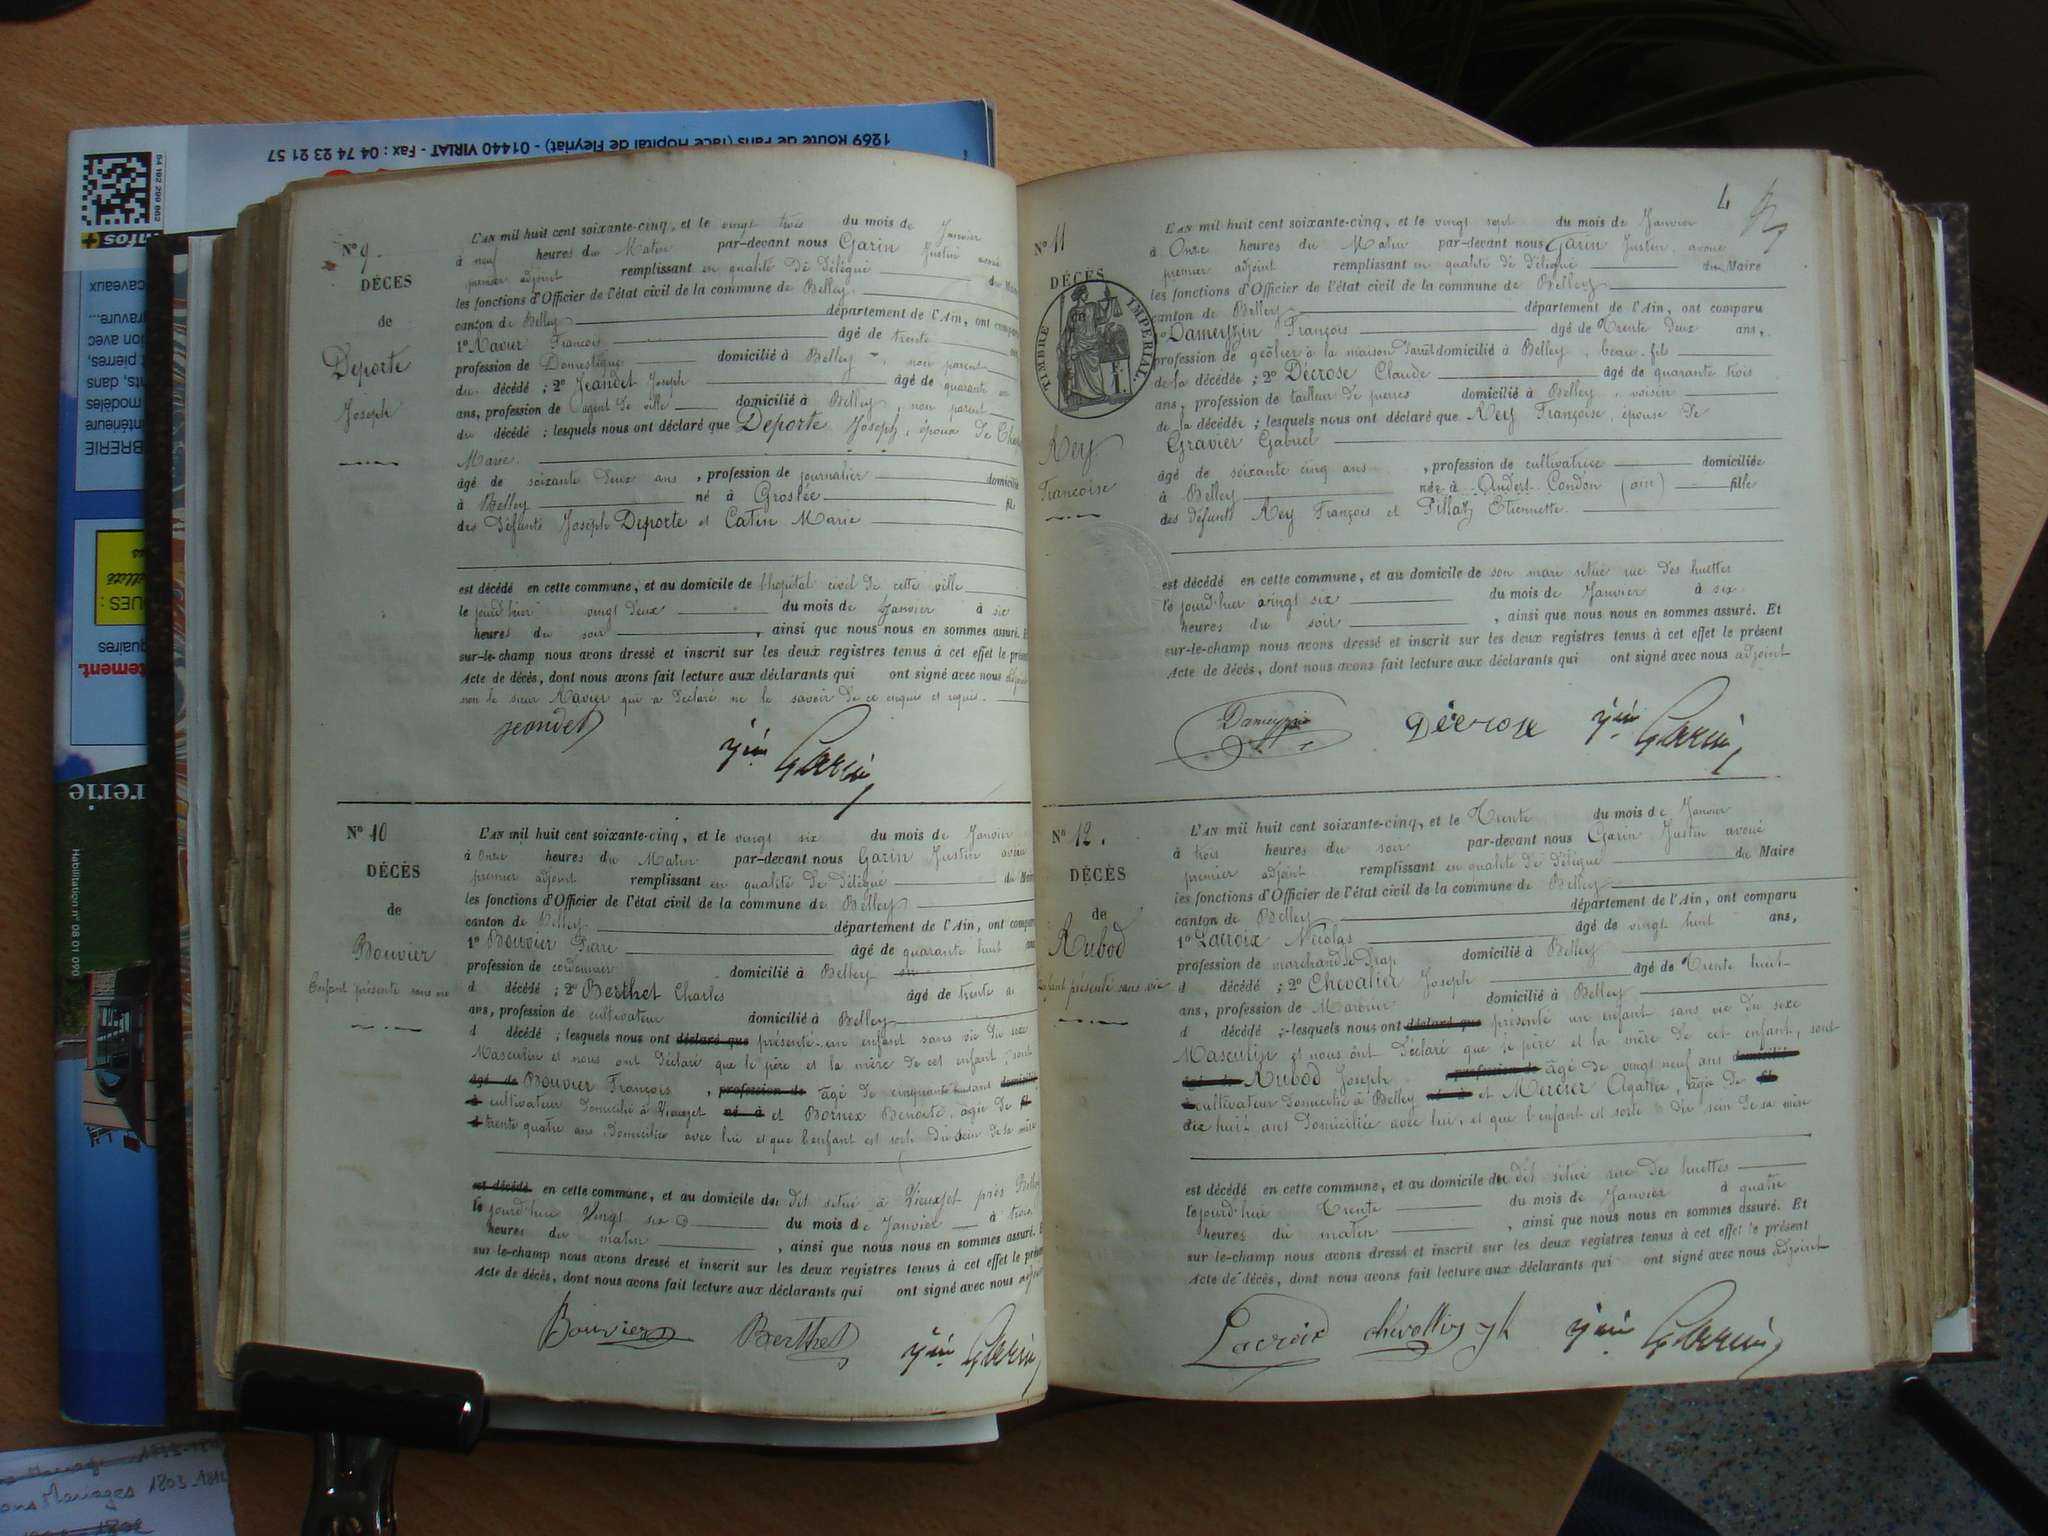 1269 Route de Paris (face Hôpital de Fleyriat) - 01440 VIRIAT - Fax : 04 74 23 21 57
54 192 299 662
infos +
caveaux
gravure...
pierres,
dans,
modèles
BRERIE
quaires
tement.
rerie
Habilitation n° 08 01 090
Mariages 1803-
N° 9.
DÉCÈS
de
Deporte
Joseph
L'AN mil huit cent soixante-cinq, et le vingt trois du mois de Janvier
à neuf heures du Matin par-devant nous Garin Justin avoué
premier adjoint remplissant en qualité de délégué du Maire
les fonctions d'Officier de l'état civil de la commune de Belley
canton de Belley département de l'Ain, ont comparu
1° Xavier François âgé de trente
profession de Domestique domicilié à Belley, non parent
du décédé ; 2° Jeandet Joseph âgé de quarante
ans, profession de agent de ville domicilié à Belley, non parent
du décédé ; lesquels nous ont déclaré que Deporte Joseph, époux de
Marie
âgé de soixante deux ans, profession de journalier domicilié
à Belley né à Groslée fil
des défunts Joseph Deporte et Catin Marie
est décédé en cette commune, et au domicile de l'hopital civil de cette ville
le jourd'hier vingt deux du mois de Janvier à six
heures du soir, ainsi que nous nous en sommes assuré. Et
sur-le-champ nous avons dressé et inscrit sur les deux registres tenus à cet effet le présent
Acte de décès, dont nous avons fait lecture aux déclarants qui ont signé avec nous adjoint
non le sieur Xavier qui a déclaré ne le savoir de ce enquis et requis.
Jeandet
Jin Garin
N° 10
DÉCÈS
de
Bouvier
Enfant présenté sans vie
L'AN mil huit cent soixante-cinq, et le vingt six du mois de Janvier
à Onze heures du Matin par-devant nous Garin Justin avoué
premier adjoint remplissant en qualité de délégué du Maire
les fonctions d'Officier de l'état civil de la commune de Belley
canton de Belley département de l'Ain, ont comparu
1° Bouvier Pierre âgé de quarante huit ans
profession de cordonnier domicilié à Belley
d décédé ; 2° Berthet Charles âgé de trente
ans, profession de cultivateur domicilié à Belley
d décédé ; lesquels nous ont déclaré que présenté un enfant sans vie du sexe
Masculin et nous ont déclaré que le père et la mère de cet enfant, sont
âgé de Bouvier François, profession de âgé de cinquante ans domicilié
à cultivateur domicilié à né à et Bornex Benoite, âgée de fil
d trente quatre ans domiciliée avec lui et que l'enfant est sorti du sein de sa mère
est décédé en cette commune, et au domicile du dit situé à près Belley
le jourd'hui vingt six du mois de Janvier à trois
heures du matin, ainsi que nous nous en sommes assuré. Et
sur-le-champ nous avons dressé et inscrit sur les deux registres tenus à cet effet le présent
Acte de décès, dont nous avons fait lecture aux déclarants qui ont signé avec nous adjoint
Bouvier Berthet Jin Garin
4
N° 11
DÉCÈS
TIMBRE IMPÉRIAL
F. 1.
Rey
Françoise
L'AN mil huit cent soixante-cinq, et le vingt sept du mois de Janvier
à Onze heures du Matin par-devant nous Garin Justin avoué
premier adjoint remplissant en qualité de délégué du Maire
les fonctions d'Officier de l'état civil de la commune de Belley
canton de Belley département de l'Ain, ont comparu
1° Dameyzin François âgé de Trente deux ans,
profession de geôlier à la maison d'arrêt domicilié à Belley, beau-fils
de la décédée ; 2° Décrose Claude âgé de quarante trois
ans, profession de tailleur de pierres domicilié à Belley, voisin
de la décédée ; lesquels nous ont déclaré que Rey Françoise, épouse de
Gravier Gabriel
âgé de soixante cinq ans, profession de cultivatrice domiciliée
à Belley née à Andert Condon (ain) fille
des défunts Rey François et Pillaz Etiennette
est décédé en cette commune, et au domicile de son mari situé rue des huettes
le jourd'hier vingt six du mois de Janvier à six
heures du soir, ainsi que nous nous en sommes assuré. Et
sur-le-champ nous avons dressé et inscrit sur les deux registres tenus à cet effet le présent
Acte de décès, dont nous avons fait lecture aux déclarants qui ont signé avec nous adjoint
Dameyzin Décrose Jin Garin
N° 12.
DÉCÈS
de
Rubod
Enfant présenté sans vie
L'AN mil huit cent soixante-cinq, et le Trente du mois de Janvier
à trois heures du soir par-devant nous Garin Justin avoué
premier adjoint remplissant en qualité de délégué du Maire
les fonctions d'Officier de l'état civil de la commune de Belley
canton de Belley département de l'Ain, ont comparu
1° Lacroix Nicolas âgé de vingt huit ans,
profession de marchand de drap domicilié à Belley
d décédé ; 2° Chevalier Joseph âgé de Trente huit
ans, profession de Marbrier domicilié à Belley
d décédé ; lesquels nous ont déclaré que présenté un enfant sans vie du sexe
Masculin et nous ont déclaré que le père et la mère de cet enfant, sont
âgé de Rubod Joseph profession de âgé de vingt neuf ans domicilié
à cultivateur domicilié à Belley né à et Mercier Agathe, âgée de fil
dix huit ans domiciliée avec lui, et que l'enfant est sorti du sein de sa mère
est décédé en cette commune, et au domicile du dit situé rue de huettes
le jourd'hui Trente du mois de Janvier à quatre
heures du matin, ainsi que nous nous en sommes assuré. Et
sur-le-champ nous avons dressé et inscrit sur les deux registres tenus à cet effet le présent
Acte de décès, dont nous avons fait lecture aux déclarants qui ont signé avec nous adjoint
Lacroix Jin Garin